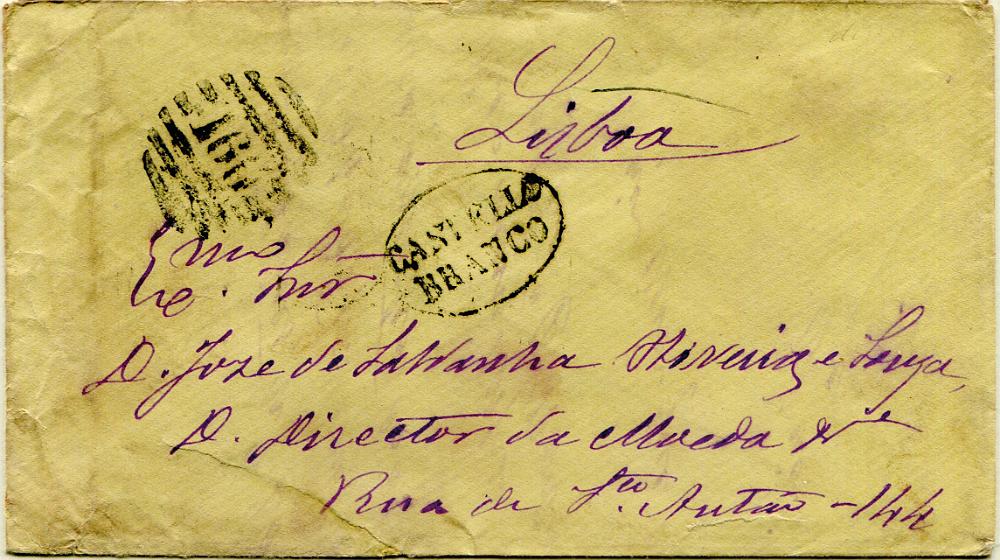 Lisboa
166
CASTELLO
BRANCO
Exmo. Snr.
D. Joze de Saldanha Oliveira e Souza,
D. Director da Moeda &
Rua de Sto. Antão - 144